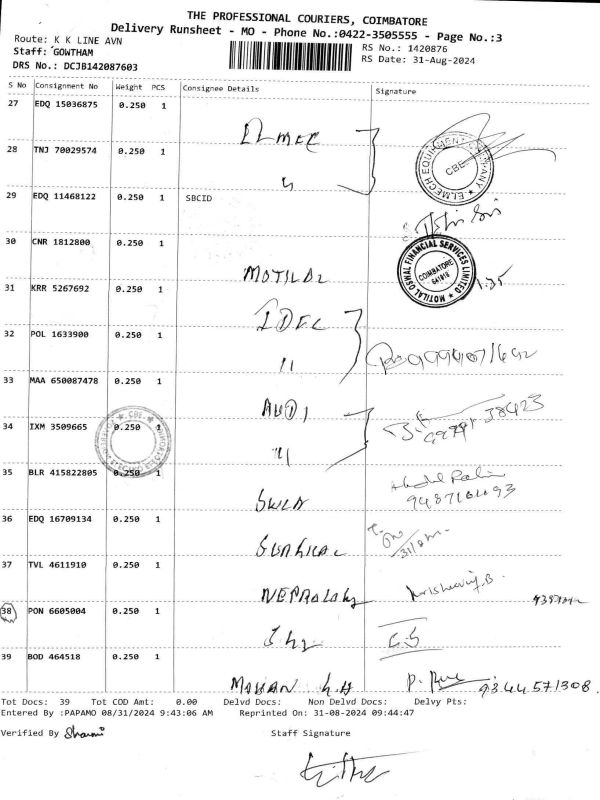 THE PROFESSIONAL COURIERS, COIMBATORE
Delivery Runsheet - MO - Phone No.:0422-3505555 - Page No.:3
Route: K K LINE AVN
RS No.: 1420876
Staff: GOWTHAM
RS Date: 31-Aug-2024
DRS No.: DCJB142087603
S No Consignment No Weight PCS Consignee Details Signature
27 EDQ 15036875 0.250 1
ELMEC
28 TNJ 70029574 0.250 1
ELMECH EQUIPMENT COMPANY CBE
29 EDQ 11468122 0.250 1 SBCID
30 CNR 1812800 0.250 1
MOTILAL
MOTILAL OSWAL FINANCIAL SERVICES LIMITED COIMBATORE 641018
31 KRR 5267692 0.250 1
IDEL
32 POL 1633900 0.250 1
"
33 MAA 650087478 0.250 1
AUDI
34 IXM 3509665 0.250 1
"
CBE
35 BLR 415822805 0.250 1
36 EDQ 16709134 0.250 1
SURGICAL
37 TVL 4611910 0.250 1
NEPROLOGY
38 PON 6605004 0.250 1
39 BOD 464518 0.250 1
MOHAN
9344571308
Tot Docs: 39 Tot COD Amt: 0.00 Delvd Docs: Non Delvd Docs: Delvy Pts:
Entered By :PAPAMO 08/31/2024 9:43:06 AM Reprinted On: 31-08-2024 09:44:47
Verified By Sharmi Staff Signature